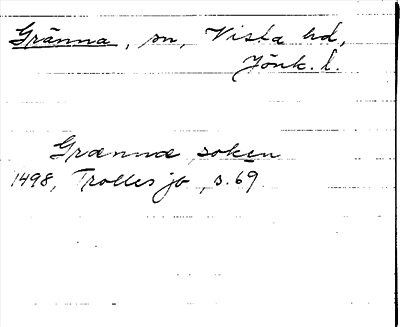 Gränna, sn, Vista hd,
Jönk. l.
Grænnæ soken
1498, Trolles jb, s. 69